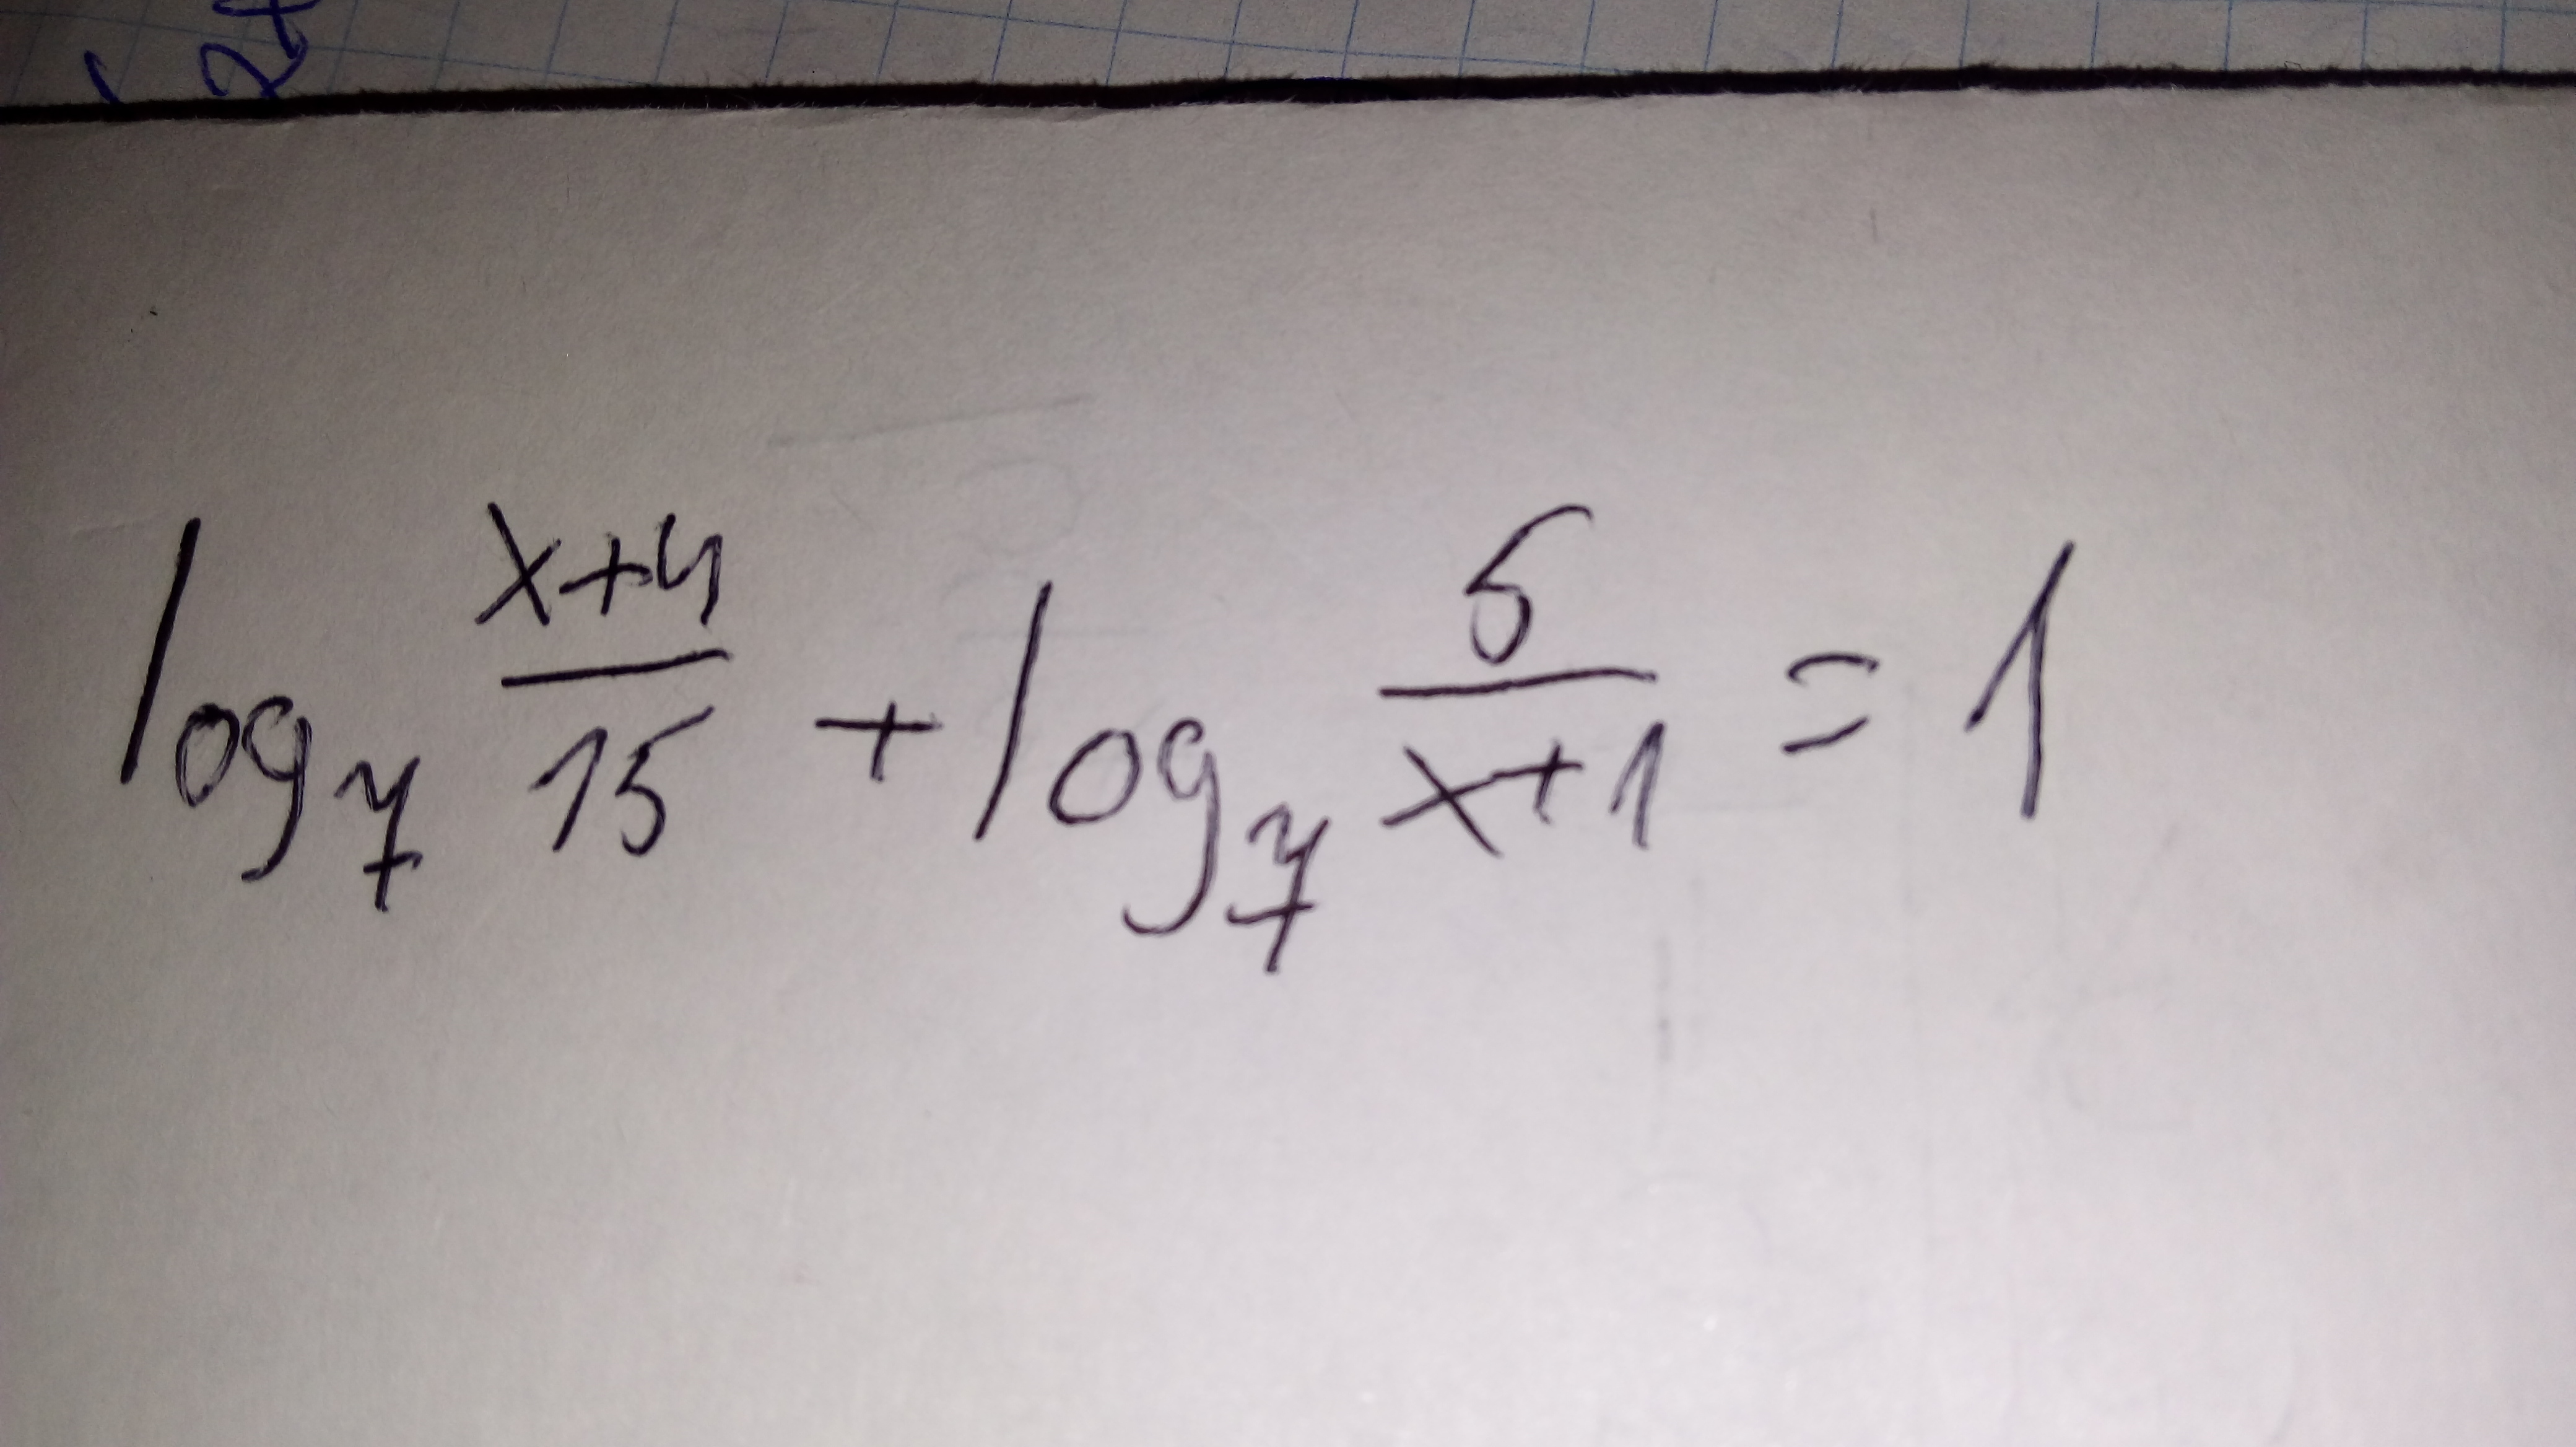 log₇ (x+4)/15 + log₇ 5/(x+1) = 1